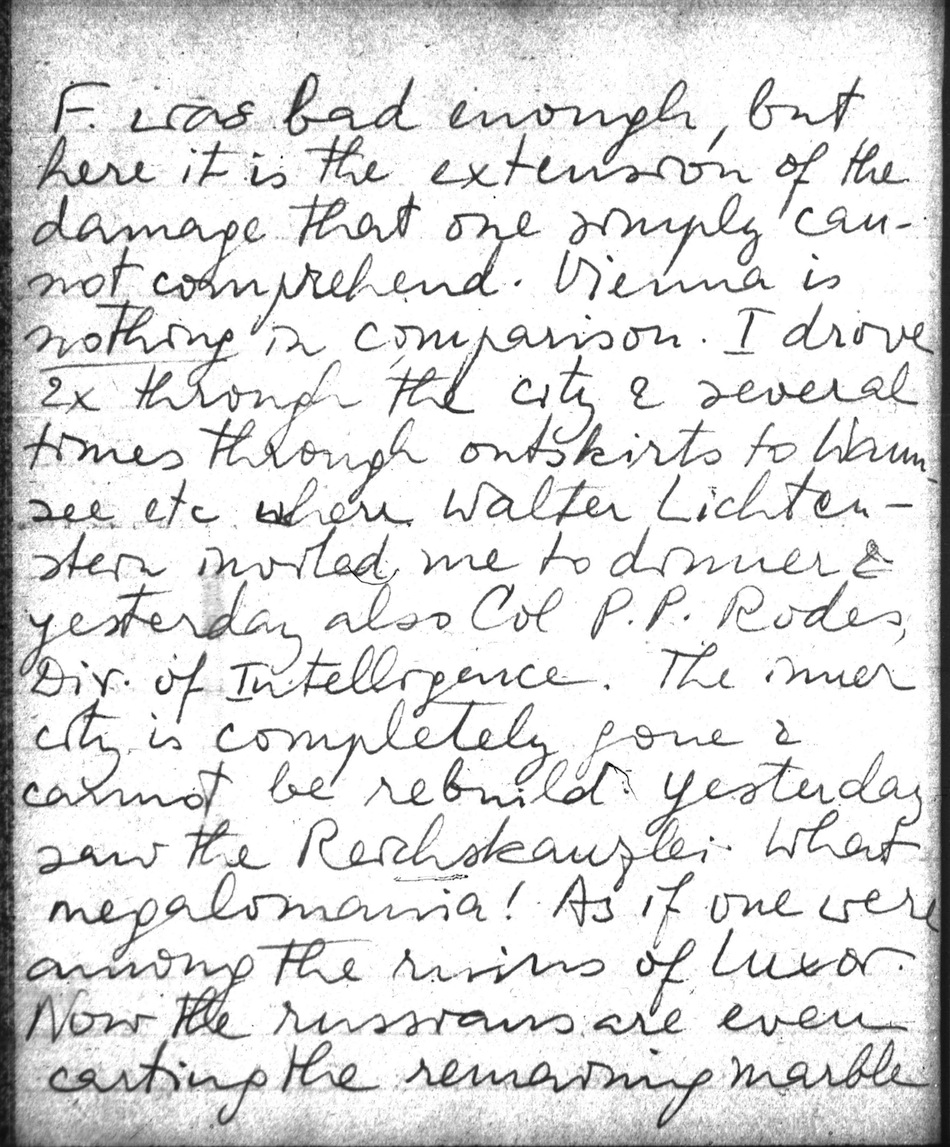 F. was bad enough, but
here it is the extension of the
damage that one simply can-
not comprehend. Vienna is
nothing in comparison. I drove
2x through the city & several
times through outskirts to Wann-
see etc where Walter Lichten-
stein invited me to dinner &
yesterday also Col P.P. Rodes,
Div. of Intelligence. The inner
city is completely gone &
cannot be rebuild. Yesterday
saw the Reichskanzlei. What
megalomania! As if one were
among the ruins of Luxor.
Now the russians are even
carting the remaining marble